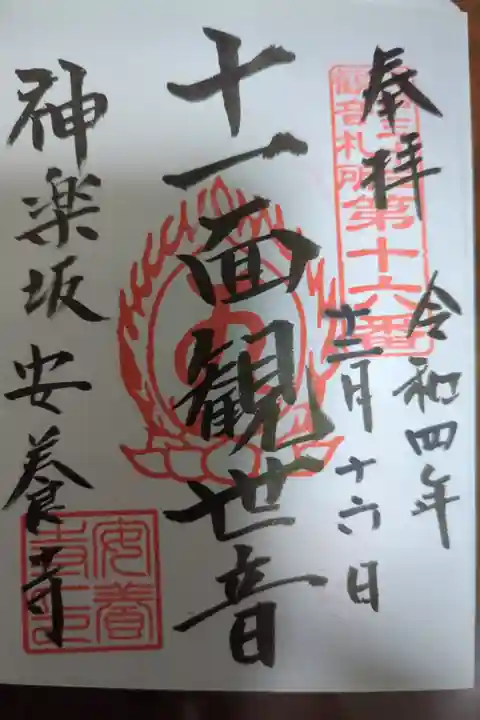 奉拝
令和四年
十二月十六日
観音札所第十六番
十一面観世音
神楽坂安養寺
安養寺印